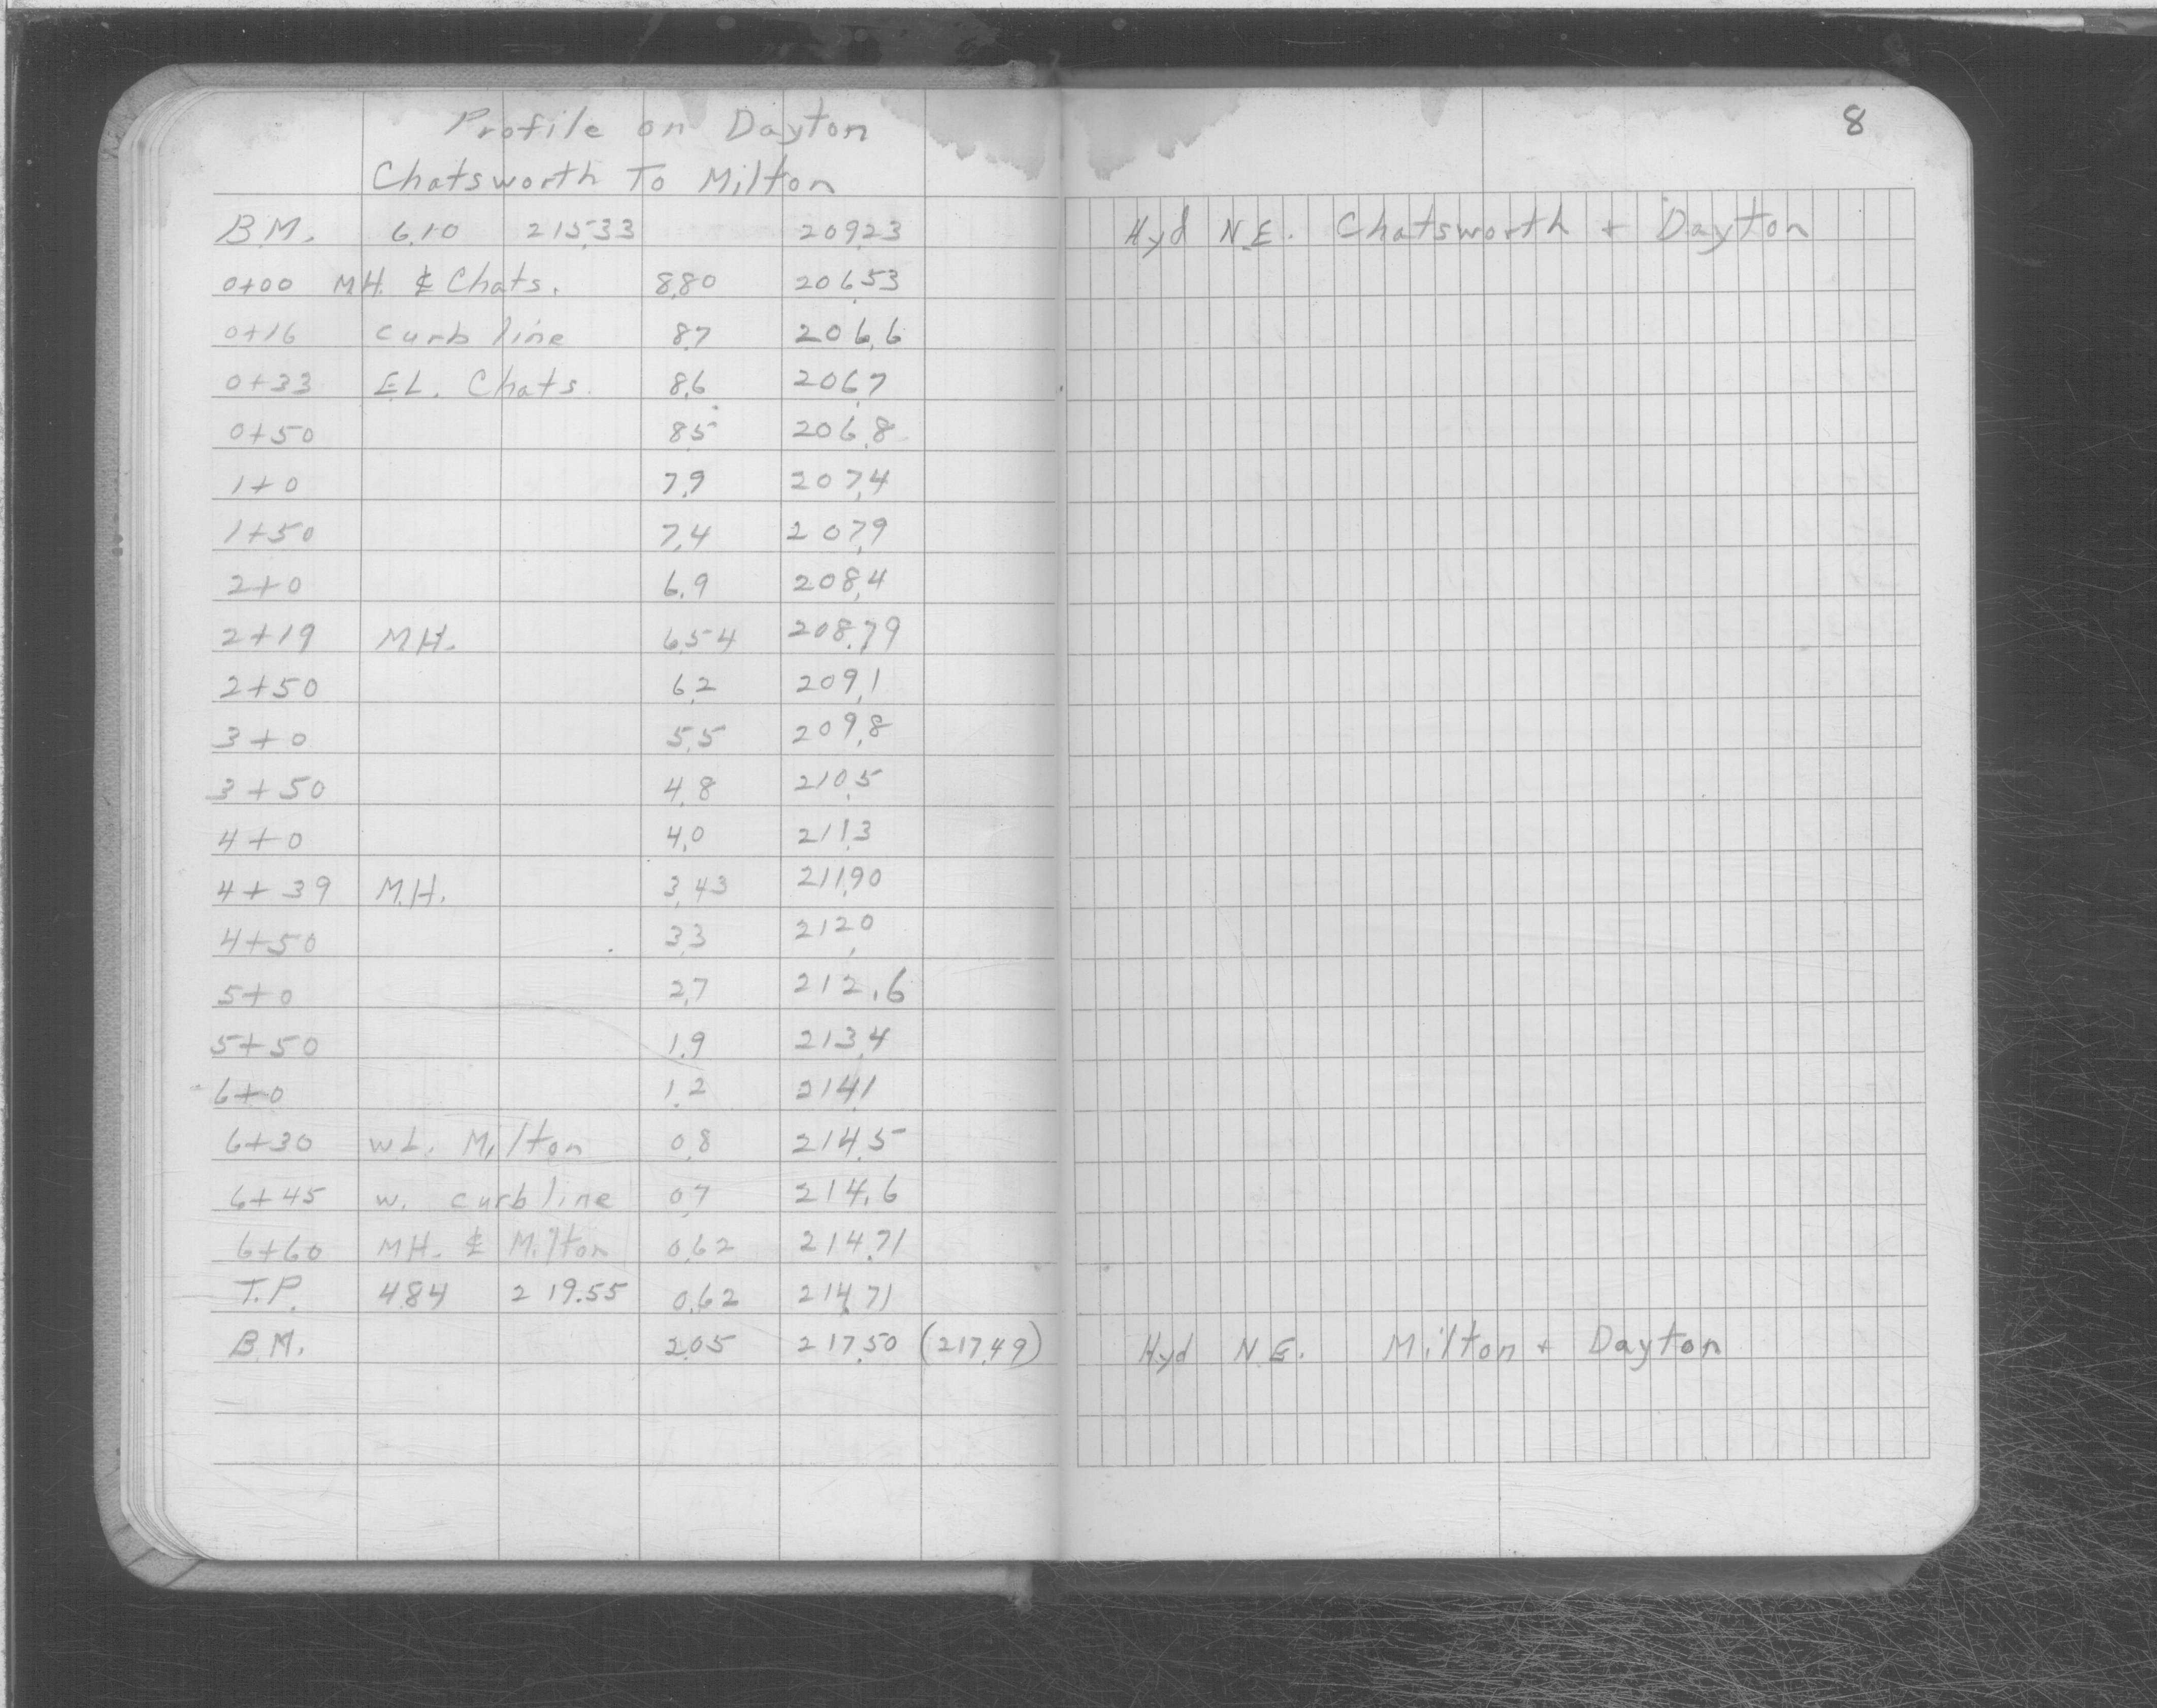 8
Profile on Dayton
Chatsworth To Milton
B.M. 6.10 215.33 209.23 Hyd N.E. Chatsworth + Dayton
0+00 MH. ℄ Chats. 8.80 206.53
0+16 curb line 8.7 206.6
0+33 EL. Chats. 8.6 206.7
0+50 8.5 206.8
1+0 7.9 207.4
1+50 7.4 207.9
2+0 6.9 208.4
2+19 MH. 6.54 208.79
2+50 6.2 209.1
3+0 5.5 209.8
3+50 4.8 210.5
4+0 4.0 211.3
4+39 M.H. 3.43 211.90
4+50 3.3 212.0
5+0 2.7 212.6
5+50 1.9 213.4
6+0 1.2 214.1
6+30 WL. Milton 0.8 214.5
6+45 w. curb line 0.7 214.6
6+60 MH. ℄ Milton 0.62 214.71
T.P. 4.84 219.55 0.62 214.71
B.M. 2.05 217.50 (217.49) Hyd N.E. Milton + Dayton